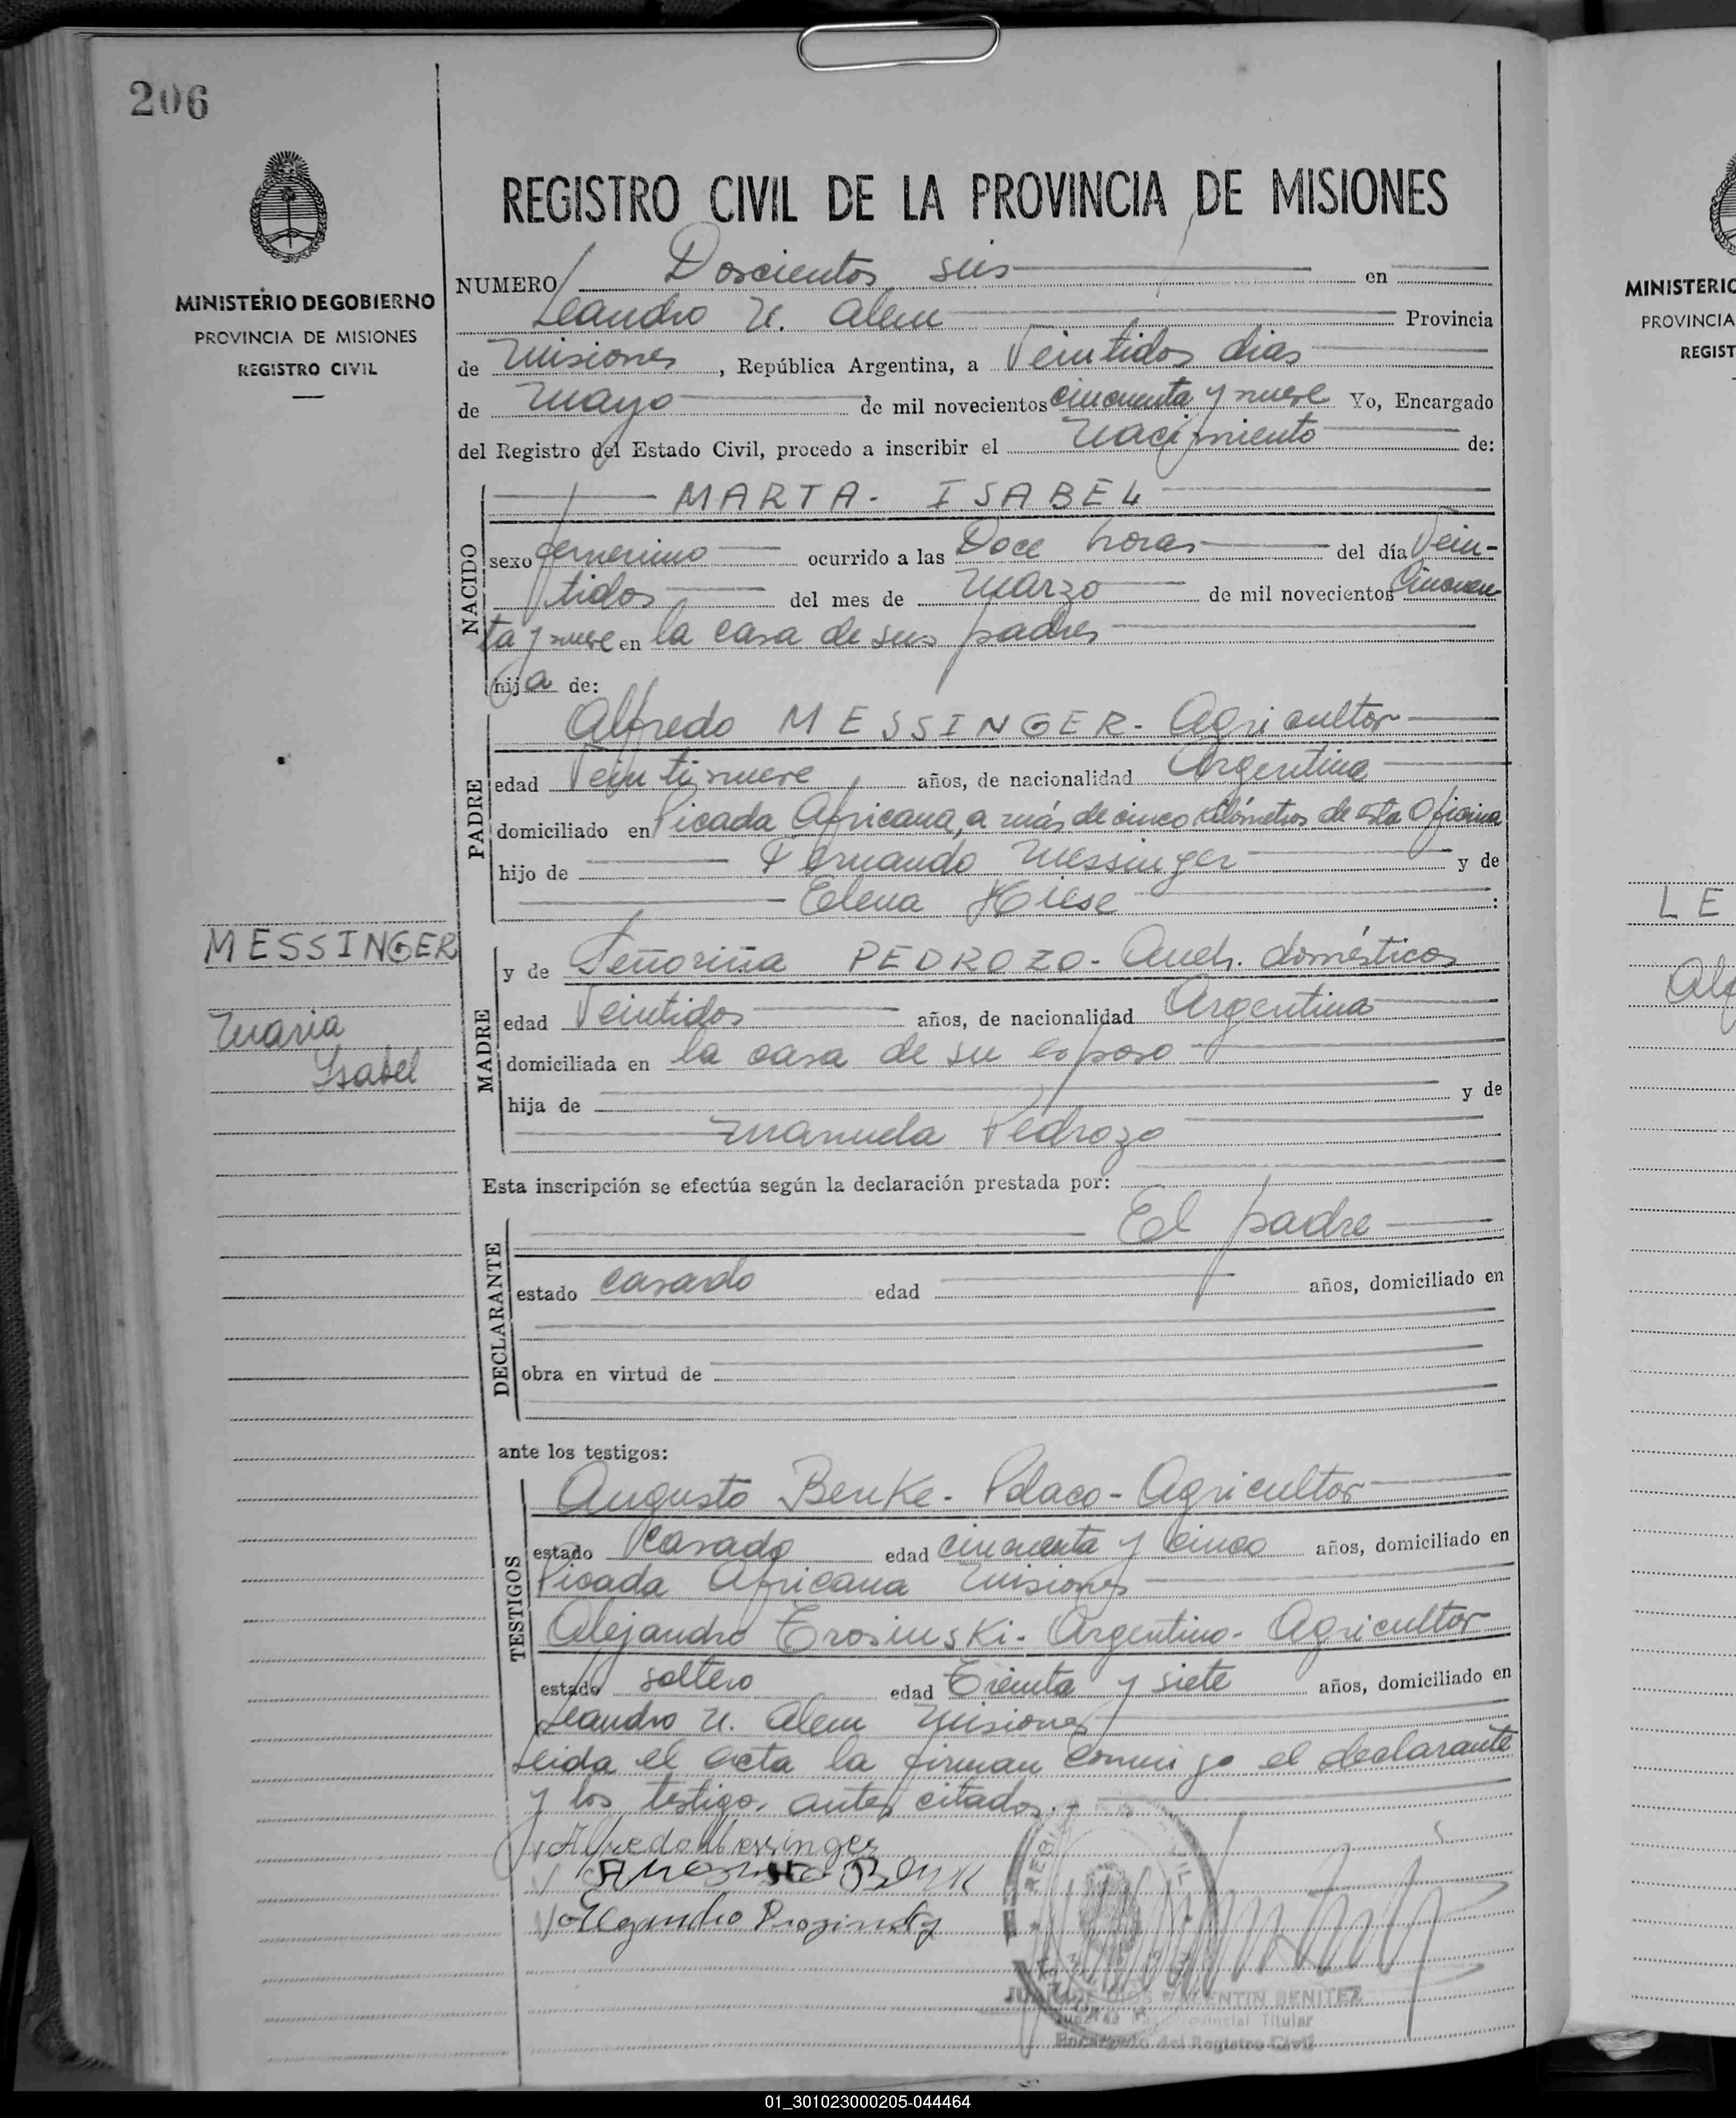 206
MINISTERIO DE GOBIERNO
PROVINCIA DE MISIONES
REGISTRO CIVIL
MESSINGER
Maria
Isabel
REGISTRO CIVIL DE LA PROVINCIA DE MISIONES
NUMERO Doscientos seis en
Leandro N. Alem Provincia
de Misiones, República Argentina, a Veintidos dias
de Mayo de mil novecientos cincuenta y nueve Yo, Encargado
del Registro del Estado Civil, procedo a inscribir el Nacimiento de:
NACIDO
MARTA- ISABEL
sexo femenino ocurrido a las Doce horas del día Vein-
tidos del mes de Marzo de mil novecientos Cincuen
ta y nueve en la casa de sus padres
hija de:
PADRE
Alfredo MESSINGER- Agricultor
edad Veintinueve años, de nacionalidad Argentina
domiciliado en Picada Africana, a más de cinco kilómetros de esta Oficina
hijo de Fernando Messinger y de
Elena Hiese :
MADRE
y de Señoriña PEDROZO- Queh. domésticos
edad Veintidos años, de nacionalidad Argentina
domiciliada en la casa de su esposo
hija de y de
Manuela Pedrozo
Esta inscripción se efectúa según la declaración prestada por:
DECLARANTE
El padre
estado casado edad años, domiciliado en
obra en virtud de
ante los testigos:
TESTIGOS
Augusto Benke- Polaco- Agricultor
estado Casado edad cincuenta y cinco años, domiciliado en
Picada Africana Misiones
Alejandro Trosinski- Argentino- Agricultor
estado soltero edad Treinta y siete años, domiciliado en
Leandro N. Alem Misiones
Leida el acta la firman conmigo el declarante
y los testigos antes citados.-
Alfredo Messinger
Augusto Benk
Alejandro
JUAN DE DIOS VALENTIN BENITEZ
Titular
Encargado del Registro Civil
MINISTERIO
PROVINCIA
REGIST
LE
Alf
01_301023000205-044464